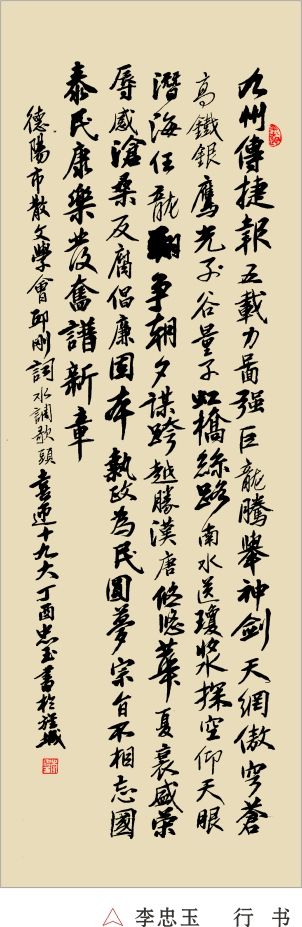 九州傳捷報五載力圖强巨龍騰舉神劍天網傲穹蒼
高鐵銀鷹光子谷量子虹橋絲路南水送瓊漿探空仰天眼
潛海任龍翔争朝夕謀跨越勝漢唐悠悠華夏衰盛榮
辱感滄桑反腐倡廉固本執政為民圓夢宗旨不相忘國
泰民康樂發奮譜新章
德陽市散文學會邱剛詞水調歌頭喜迎十九大丁酉忠玉書於旌城
△ 李忠玉 行 书